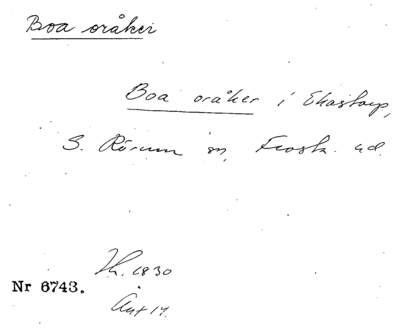 Boa oråker
Boa oråker i Ekastorp,
S. Rörum sn, Frosta hd.
Th. 1830
Nr 6743.
Ant 14.